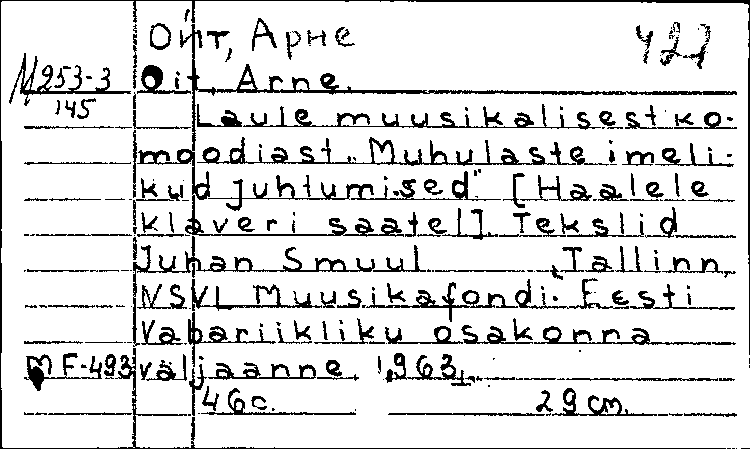 Ойт, Арне
427
M253-3 Oit, Arne.
145
Laule muusikalisest ko-
moodiast „Muhulaste imeli-
kud juhtumised" [Haalele
klaveri saatel]. Tekslid
Juhan Smuul Tallinn,
NSVL Muusikafondi. Eesti
Vabariikliku osakonna
MF-493 väljaanne, 1963.
46c. 29 cm.